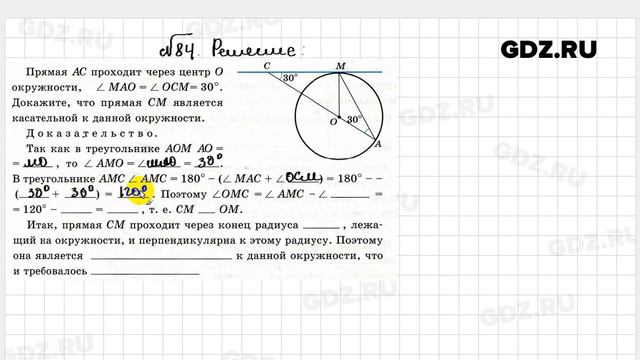 №84. Решение:
GDZ.RU
Прямая AC проходит через центр O
окружности, ∠ MAO = ∠ OCM = 30°.
Докажите, что прямая CM является
касательной к данной окружности.
Доказательство.
Так как в треугольнике AOM AO =
= МО, то ∠ AMO = ∠ = 30°.
В треугольнике AMC ∠ AMC = 180° – (∠ MAC + ∠ OCM) = 180° – –
(30° + 30°) = 120°. Поэтому ∠OMC = ∠ AMC – ∠ ______ =
= 120° – ______ = ______, т. е. CM ___ OM.
Итак, прямая CM проходит через конец радиуса ______, лежа-
щий на окружности, и перпендикулярна к этому радиусу. Поэтому
она является ______ к данной окружности, что
и требовалось ______
C M
30°
O 30°
A
GDZ.RU
GDZ.RU
GDZ.RU
GDZ.RU
GDZ.RU
GDZ.RU